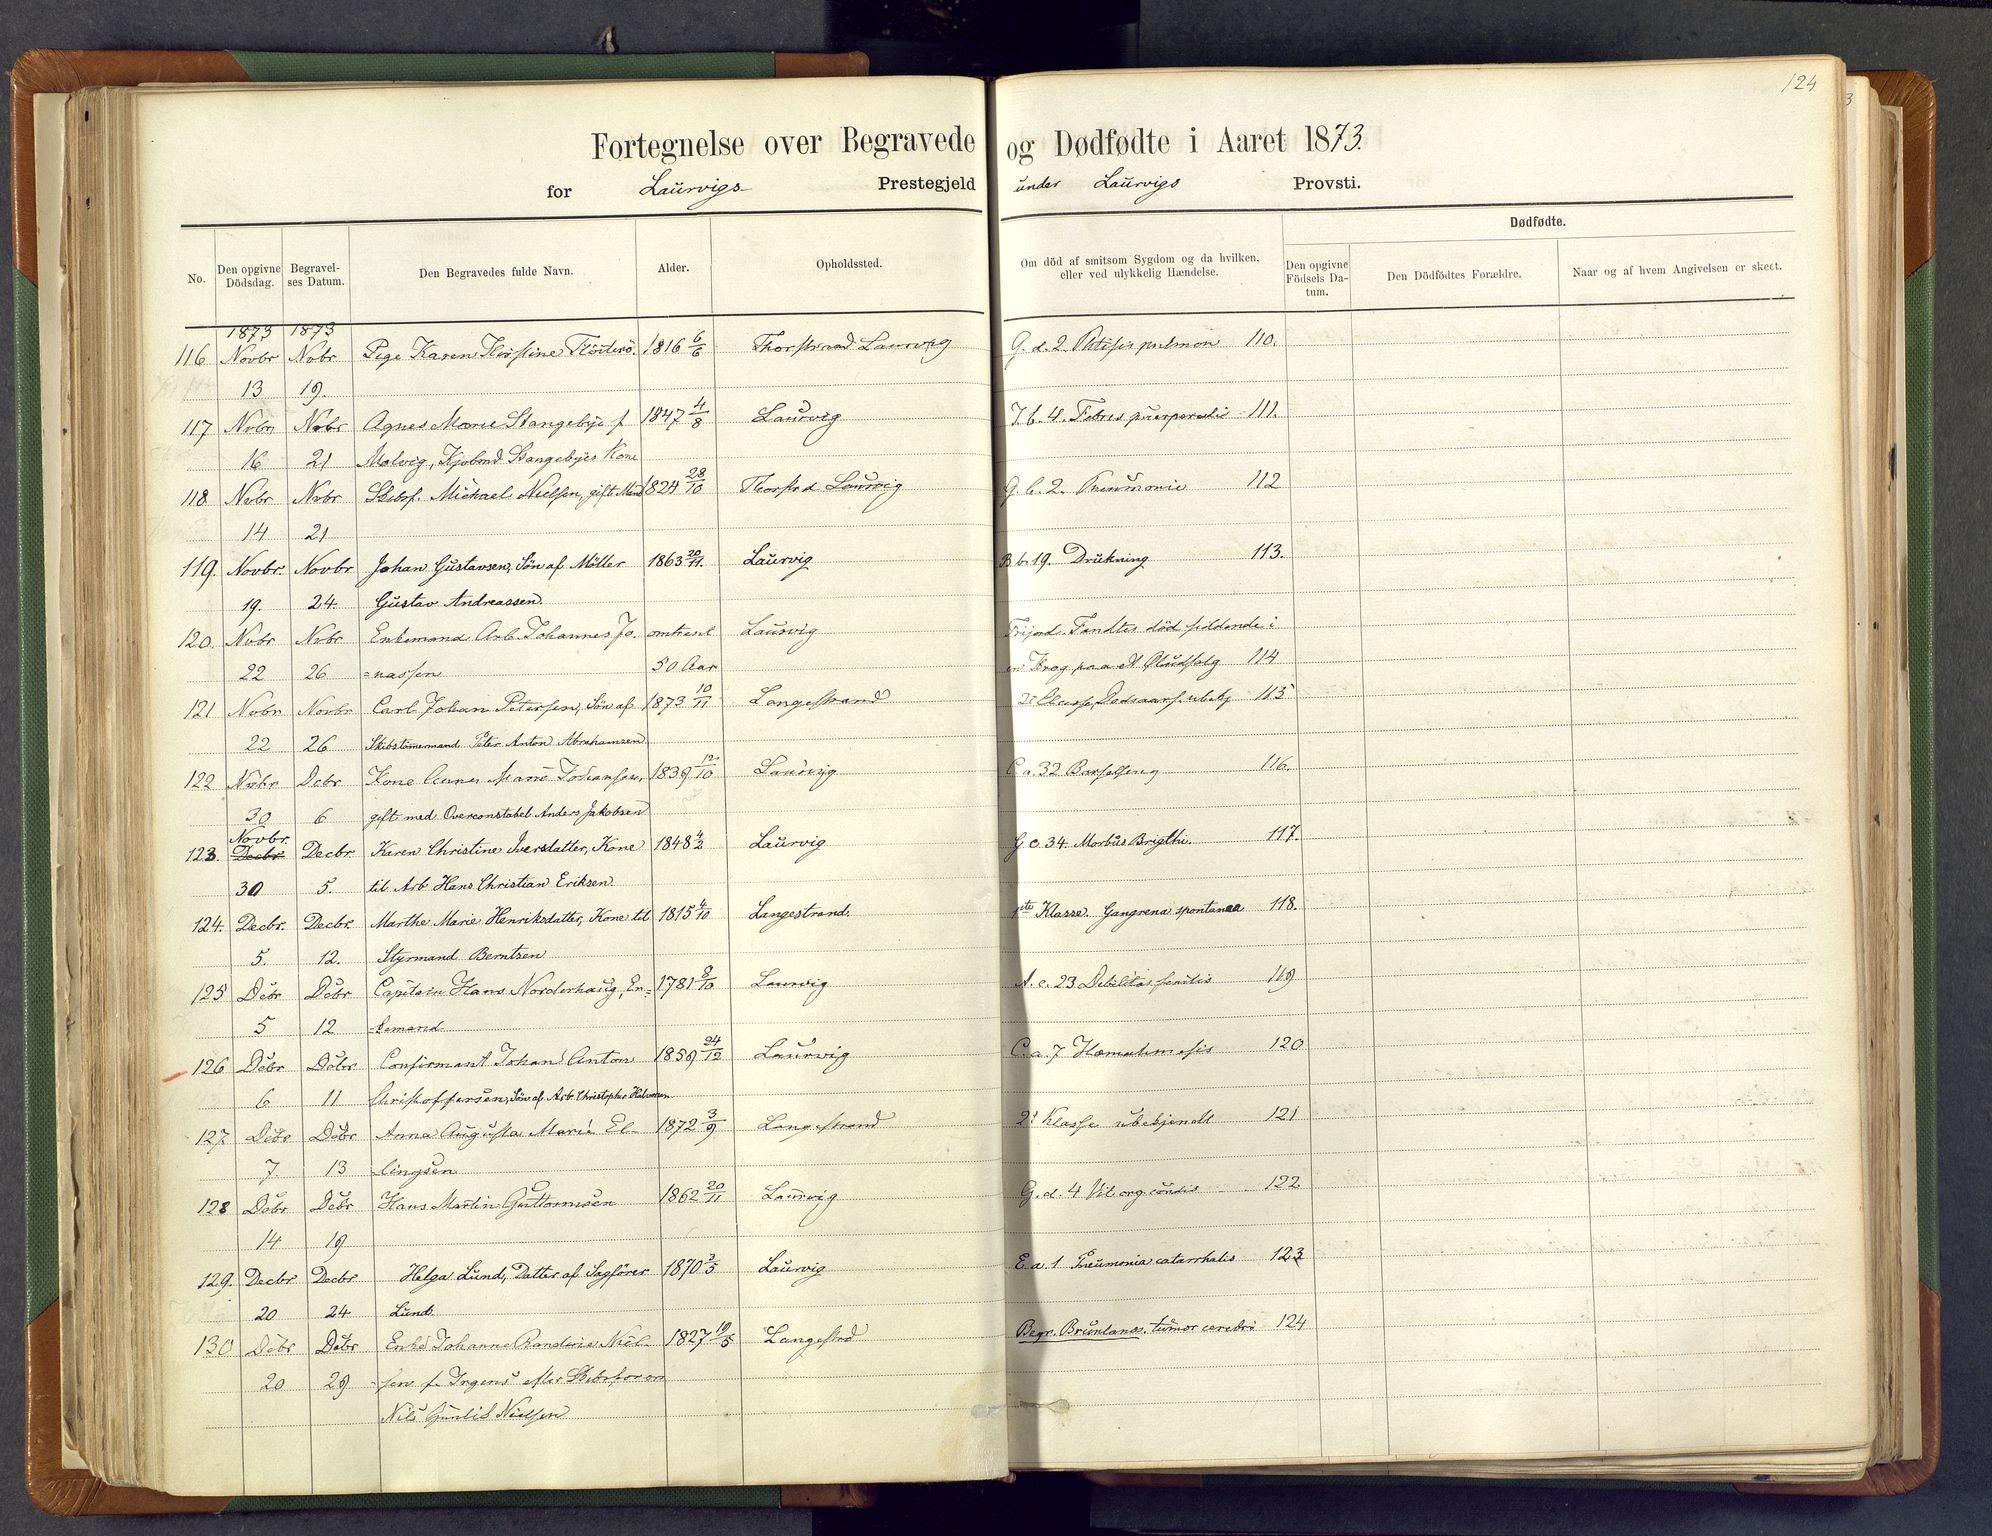 124
Fortegnelse over Begravede og Dødfødte i Aaret 1873.
for Laurvigs Prestegjeld under Laurvigs Provsti.
Dødfødte.
No. Den opgivne Dödsdag. Begravelses Datum. Den Begravedes fulde Navn. Alder. Opholdssted. Om död af smitsom Sygdom og da hvilken, eller ved ulykkelig Hændelse. Den opgivne Födsels Datum. Den Dödfödtes Forældre. Naar og af hvem Angivelsen er skeet.
1873 1873
116 Novbr Nvbr Pige Karen Kirstine 1816 6/6 Thorstrand Laurvig G. d. 2 Phtisis pulmon 110.
13 19.
117 Nvbr Nvbr Agnes Marie Stangebye f 1847 4/8 Laurvig J. b. 4. Febris puerperalis 111.
16 21 Malvig, Kjøbmd Stangebyes Kone
118 Nvbr Nvbr Skibsf. Michael Nielsen, gift Mand 1824 28/10 Thorstrd Laurvig G. b. 2. Pneumonie 112
14 21
119. Novbr. Novbr Johan Gustavsen, Sön af Möller 1863 20/11. Laurvig B b. 19. Drukning 113.
19. 24. Gustav Andreassen.
120. Nvbr Nvbr Enkemand Arb. Johannes Jo= omtrent Laurvig Frijord. Fandtes död siddende i
22 26 =nassen 50 Aar en Krog paa et Öludsalg 114
121 Nvbr Novbr Carl Johan Petersen, Sön af 1873 10/11 Langestrand 2 Classe, Dødsaars. ubekj 115
22 26 Skibstømermand Peter Anton Abrahamsen
122 Nvbr Dcbr Kone Anne Marie Johansen, 1839 12/10 Laurvig C. a. 32 Barselseng 116.
30 6 gift med Overconstabel Anders Jakobsen
Novbr.
123. Decbr Decbr Karen Christine Iversdatter, Kone 1848 4/2 Laurvig G c. 34. Morbus Brigthii. 117.
30 5. til Arb Hans Christian Eriksen.
124. Decbr. Decbr. Marthe Marie Henriksdatter, Kone til 1815 4/10 Langestrand. 1ste Klasse. Gangrena spontanea 118.
5. 12. Styrmand Berntsen
125 Dcbr Dcbr Capitain Hans Norderhaug, En= 1781 8/10 Laurvig A. c. 23 Debilitas senilis 119
5 12 =kemand
126 Dcbr Dcbr Confirmant Johan Anton 1859 24/12 Laurvig C. a. 7 Hæmatemesis 120
6 11 Christoffersen, Sön af Arb. Christopher Halvorsen
127. Dcbr Dcbr Anna Augusta Marie El= 1872 3/9 Langestrand 2 Klasse ubekjendt 121
7. 13 lingsen
128 Dcbr Dcbr Hans Martin Guttormsen 1862 20/11 Laurvig G. d. 4 Vit. org. cordis 122
14 19
129. Decbr Decbr Helga Lund, Datter af Sagförer 1870 3/5 Laurvig E. a. 1 Pneumonia catarrhalis 123
20 24 Lund.
130 Dcbr Dcbr Enke Johanne Randine Niel= 1827 19/5 Langestrd Begr. Brunlanæs. tumor cerebri 124
20 29 =sen f. Irgens efter Skibsfører
Nils Nielsen